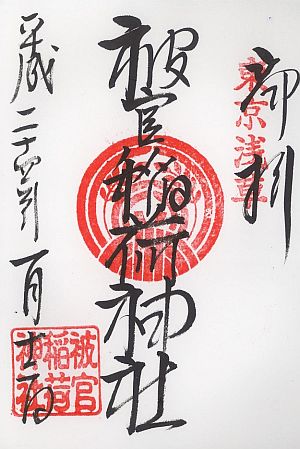 東京浅草
被官稲荷神社
平成二十四年一月
被官
稲荷
神社